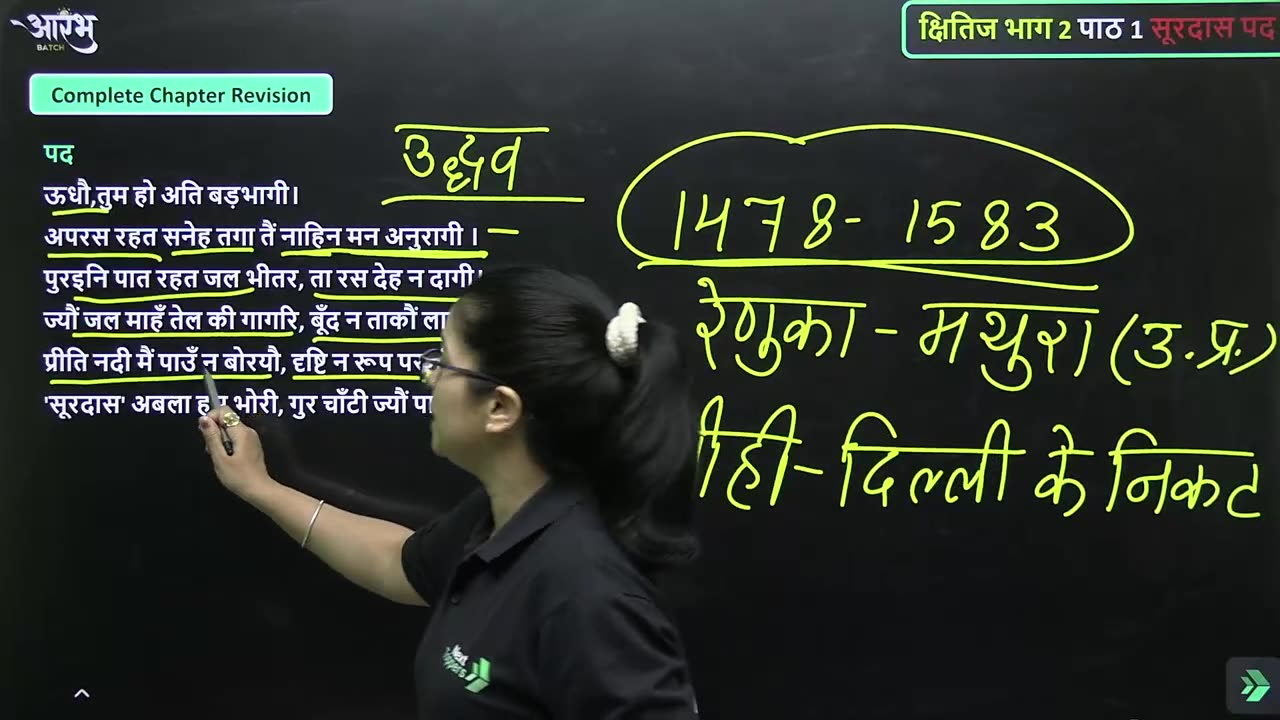 आरंभ
BATCH
क्षितिज भाग 2 पाठ 1 सूरदास पद
Complete Chapter Revision
पद
ऊधौ,तुम हो अति बड़भागी।
अपरस रहत सनेह तगा तैं नाहिन मन अनुरागी ।
पुरइनि पात रहत जल भीतर, ता रस देह न दागी।
ज्यौं जल माहँ तेल की गागरि, बूँद न ताकौं
प्रीति नदी मैं पाउँ न बोरयौ, दृष्टि न रूप
'सूरदास' अबला भोरी, गुर चाँटी ज्यौं
उद्धव
1478- 1583
रेणुका - मथुरा (उ.प्र.)
ीही - दिल्ली के निकट
Next
Toppers